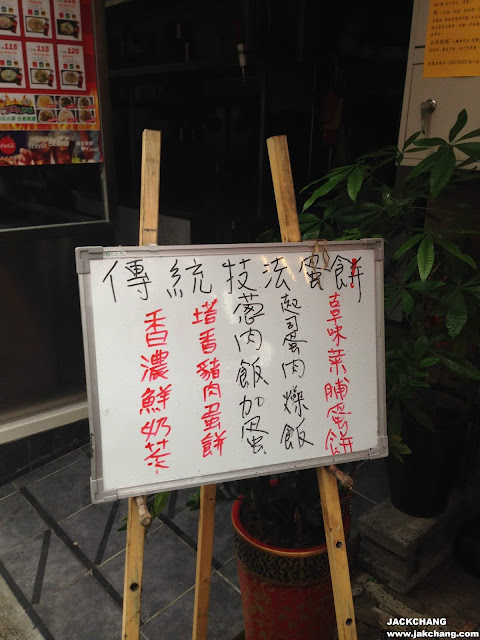 傳統技法蛋餅
古早味菜脯蛋餅
起司蛋肉燥飯
蔥肉飯加蛋
塔香豬肉蛋餅
香濃鮮奶茶
115
115
125
JACKCHANG
www.jakchang.com